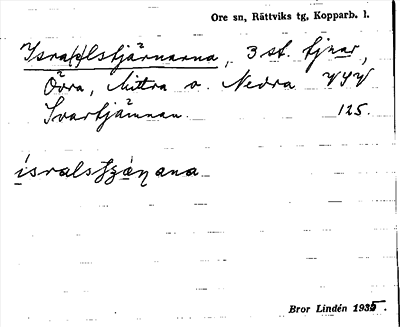 Ore sn, Rättviks tg, Kopparb. l.
Isra(e)lstjärnarna, 3 st. tjnar,
Övra, Mittra o. Nedra
Svartjärnan. 125.
Bror Lindén 1935.